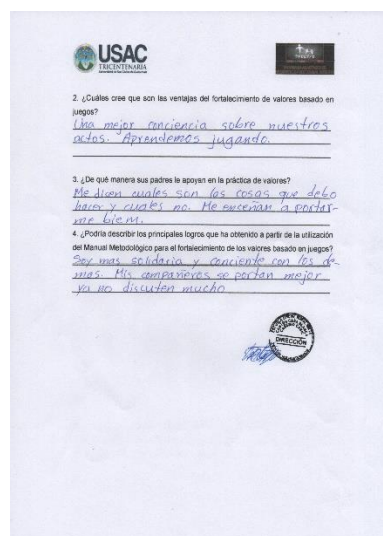 USAC
TRICENTENARIA
2. ¿Cuáles cree que son las ventajas del fortalecimiento de valores basado en
juegos?
Una mejor conciencia sobre nuestros
actos. Aprendemos jugando.
3. ¿De qué manera sus padres le apoyan en la práctica de valores?
Me dicen cuales son las cosas que debo
hacer y cuales no. Me enceñan a portar-
me biem.
4. ¿Podría describir los principales logros que ha obtenido a partir de la utilización
del Manual Metodológico para el fortalecimiento de los valores basado en juegos?
Soy mas solidaria y conciente con los de-
mas. Mis compañeros se portan mejor
ya no discuten mucho
DIRECCIÓN